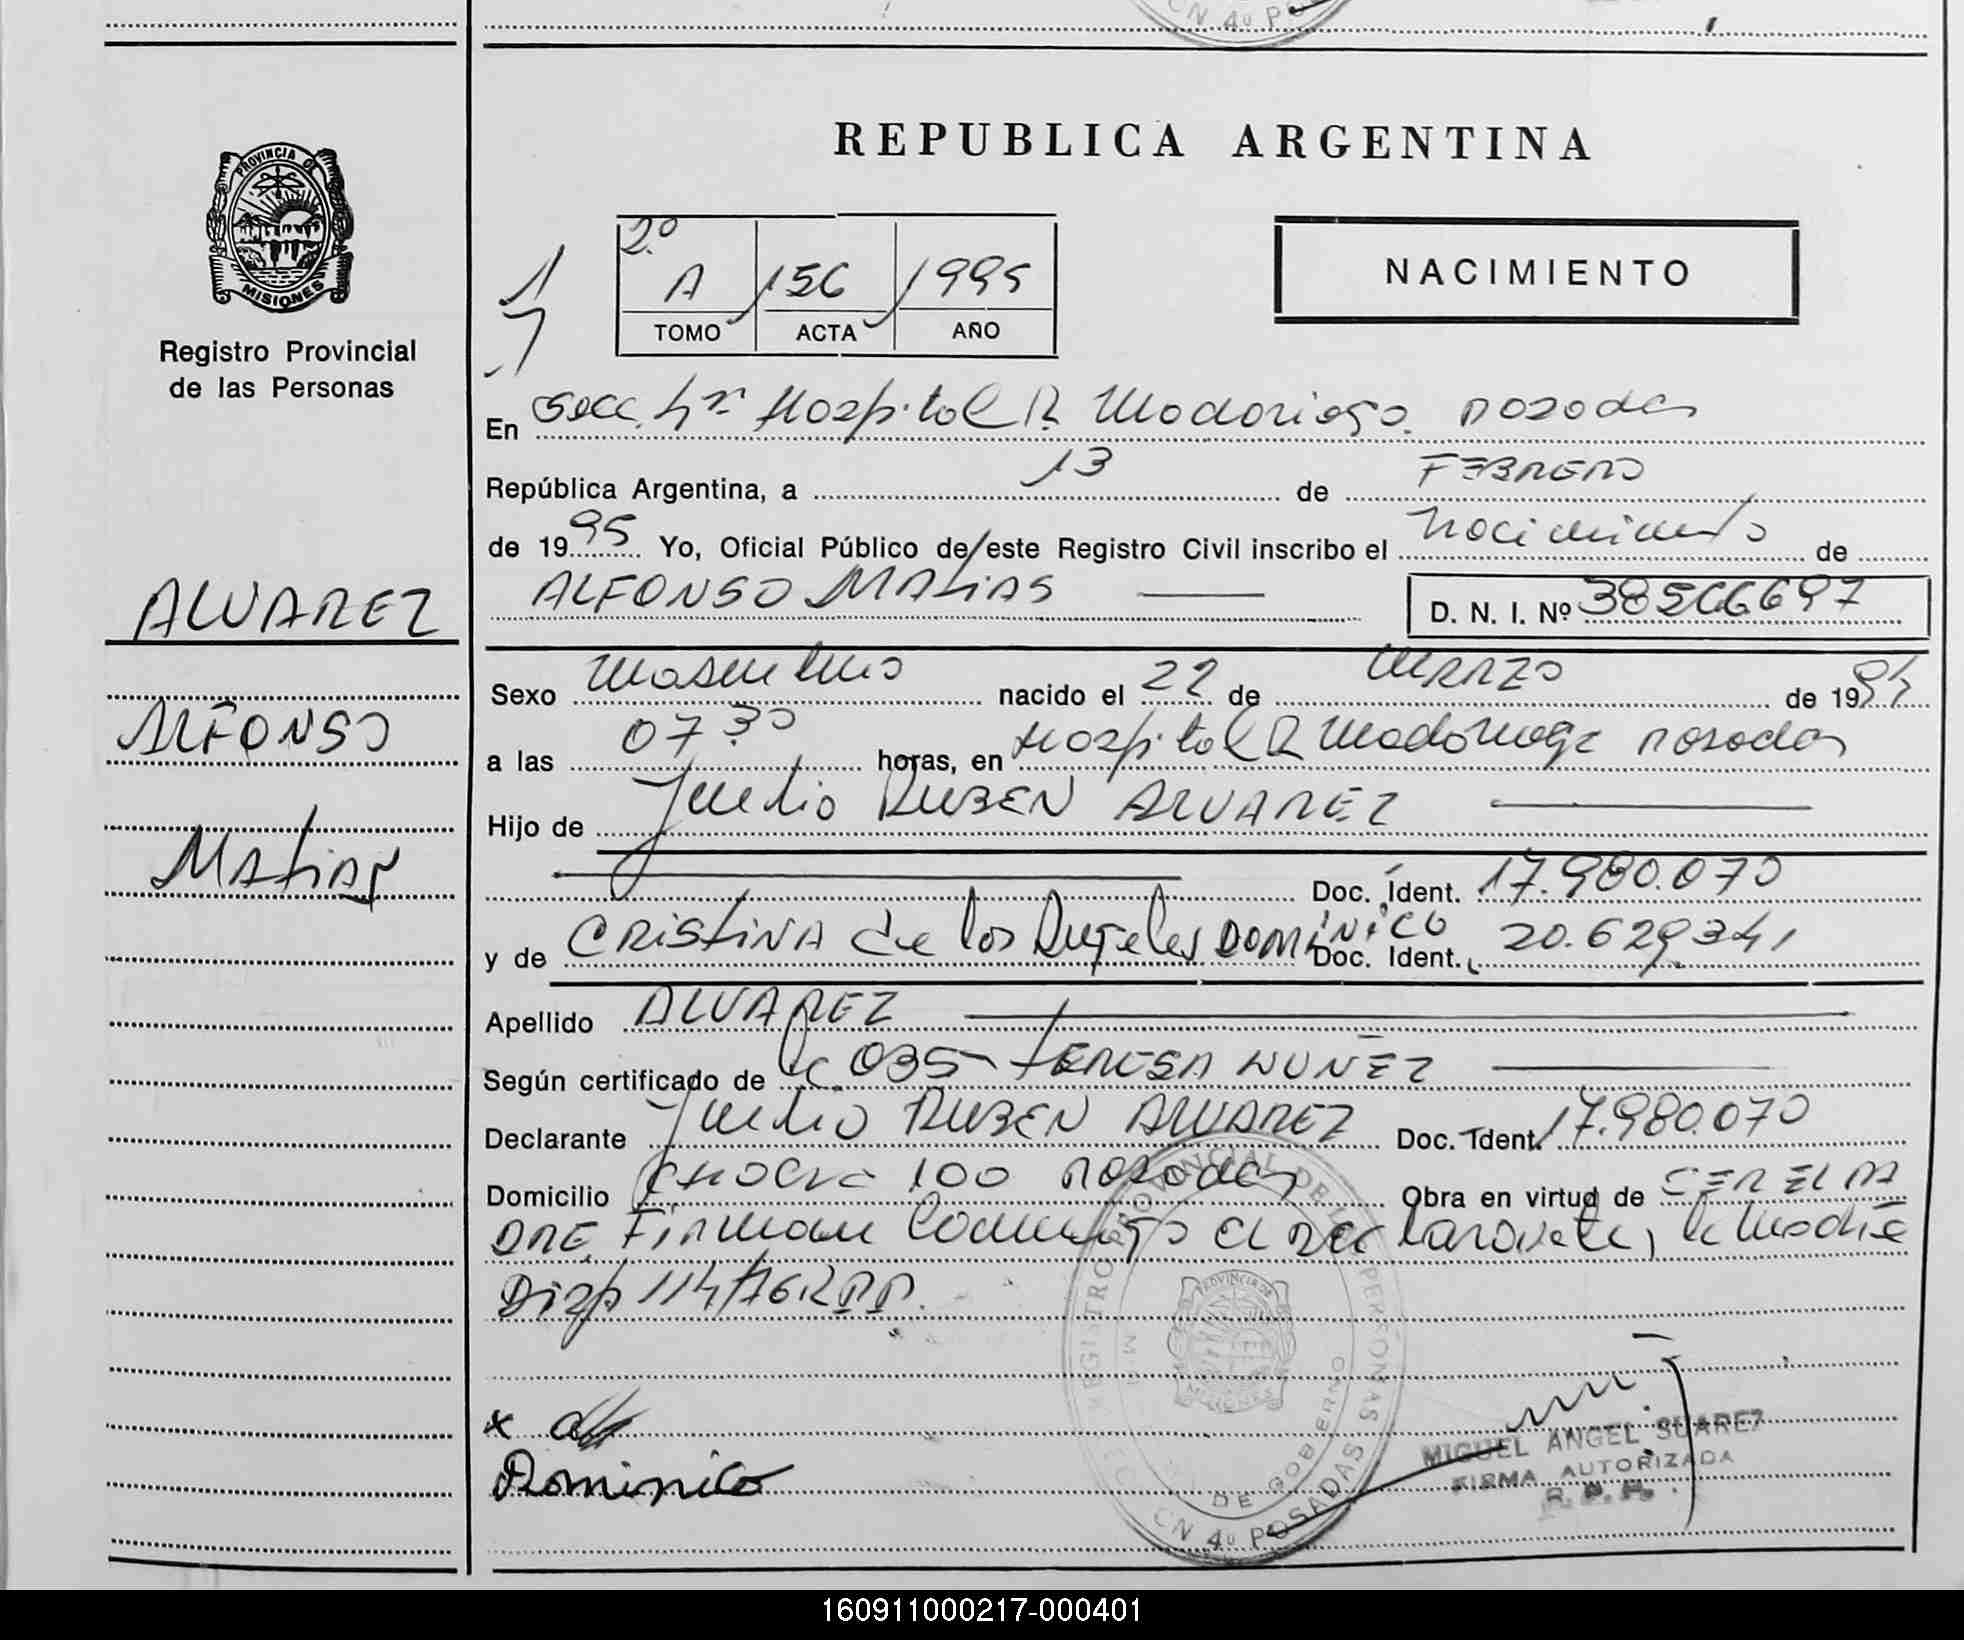 CN 4º POSADAS
PROVINCIA DE
MISIONES
Registro Provincial
de las Personas
ALVAREZ
ALFONSO
Matias
REPUBLICA ARGENTINA
2º
A 156 1995
TOMO ACTA AÑO
NACIMIENTO
En Secc. 4ª Hospital R. Madariaga. Posadas
República Argentina, a 13 de FEBRERO
de 1995 Yo, Oficial Público de este Registro Civil inscribo el nacimiento de
ALFONSO MAtiAS D. N. I. Nº 38566697
Sexo masculino nacido el 22 de MARZO de 1994
a las 07 30 horas, en Hospital R Madariaga Posadas
Hijo de Julio RUBEN ALVAREZ
Doc. Ident. 17.980.070
y de CRIStINA de los Angeles DOMINICO Doc. Ident. 20.629.341
Apellido ALVAREZ
Según certificado de 035 tERESA NUÑEZ
Declarante Julio RUBEN ALVAREZ Doc. Ident. 17.980.070
Domicilio 100 Posadas Obra en virtud de SER EL PA
DRE. Firman conmigo el declarante, la madre
Disp 114/76 RPP.
x
Dominico
REGISTRO PROVINCIAL DE LAS PERSONAS
PROVINCIA DE
MISIONES
DE GOBIERNO
CN 4º POSADAS
MIGUEL ANGEL SUAREZ
FIRMA AUTORIZADA
R. P. P.
160911000217-000401